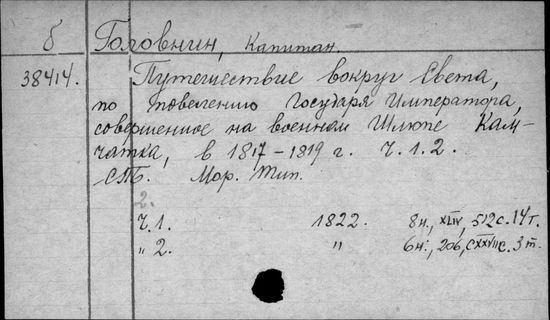 б Головнин, Капитан.
38414. Путешествие вокруг Света,
по повелению Государя Императора,
совершенное на военном Шлюпе Кам-
чатка, в 1817-1819 г. Ч.1.2.
СПб. Мор. Тип.
2.
Ч.1. 1822. 8н., XLIV, 512с. 14т.
„ 2. „ 6н., 206, CXXVIIс. 3т.